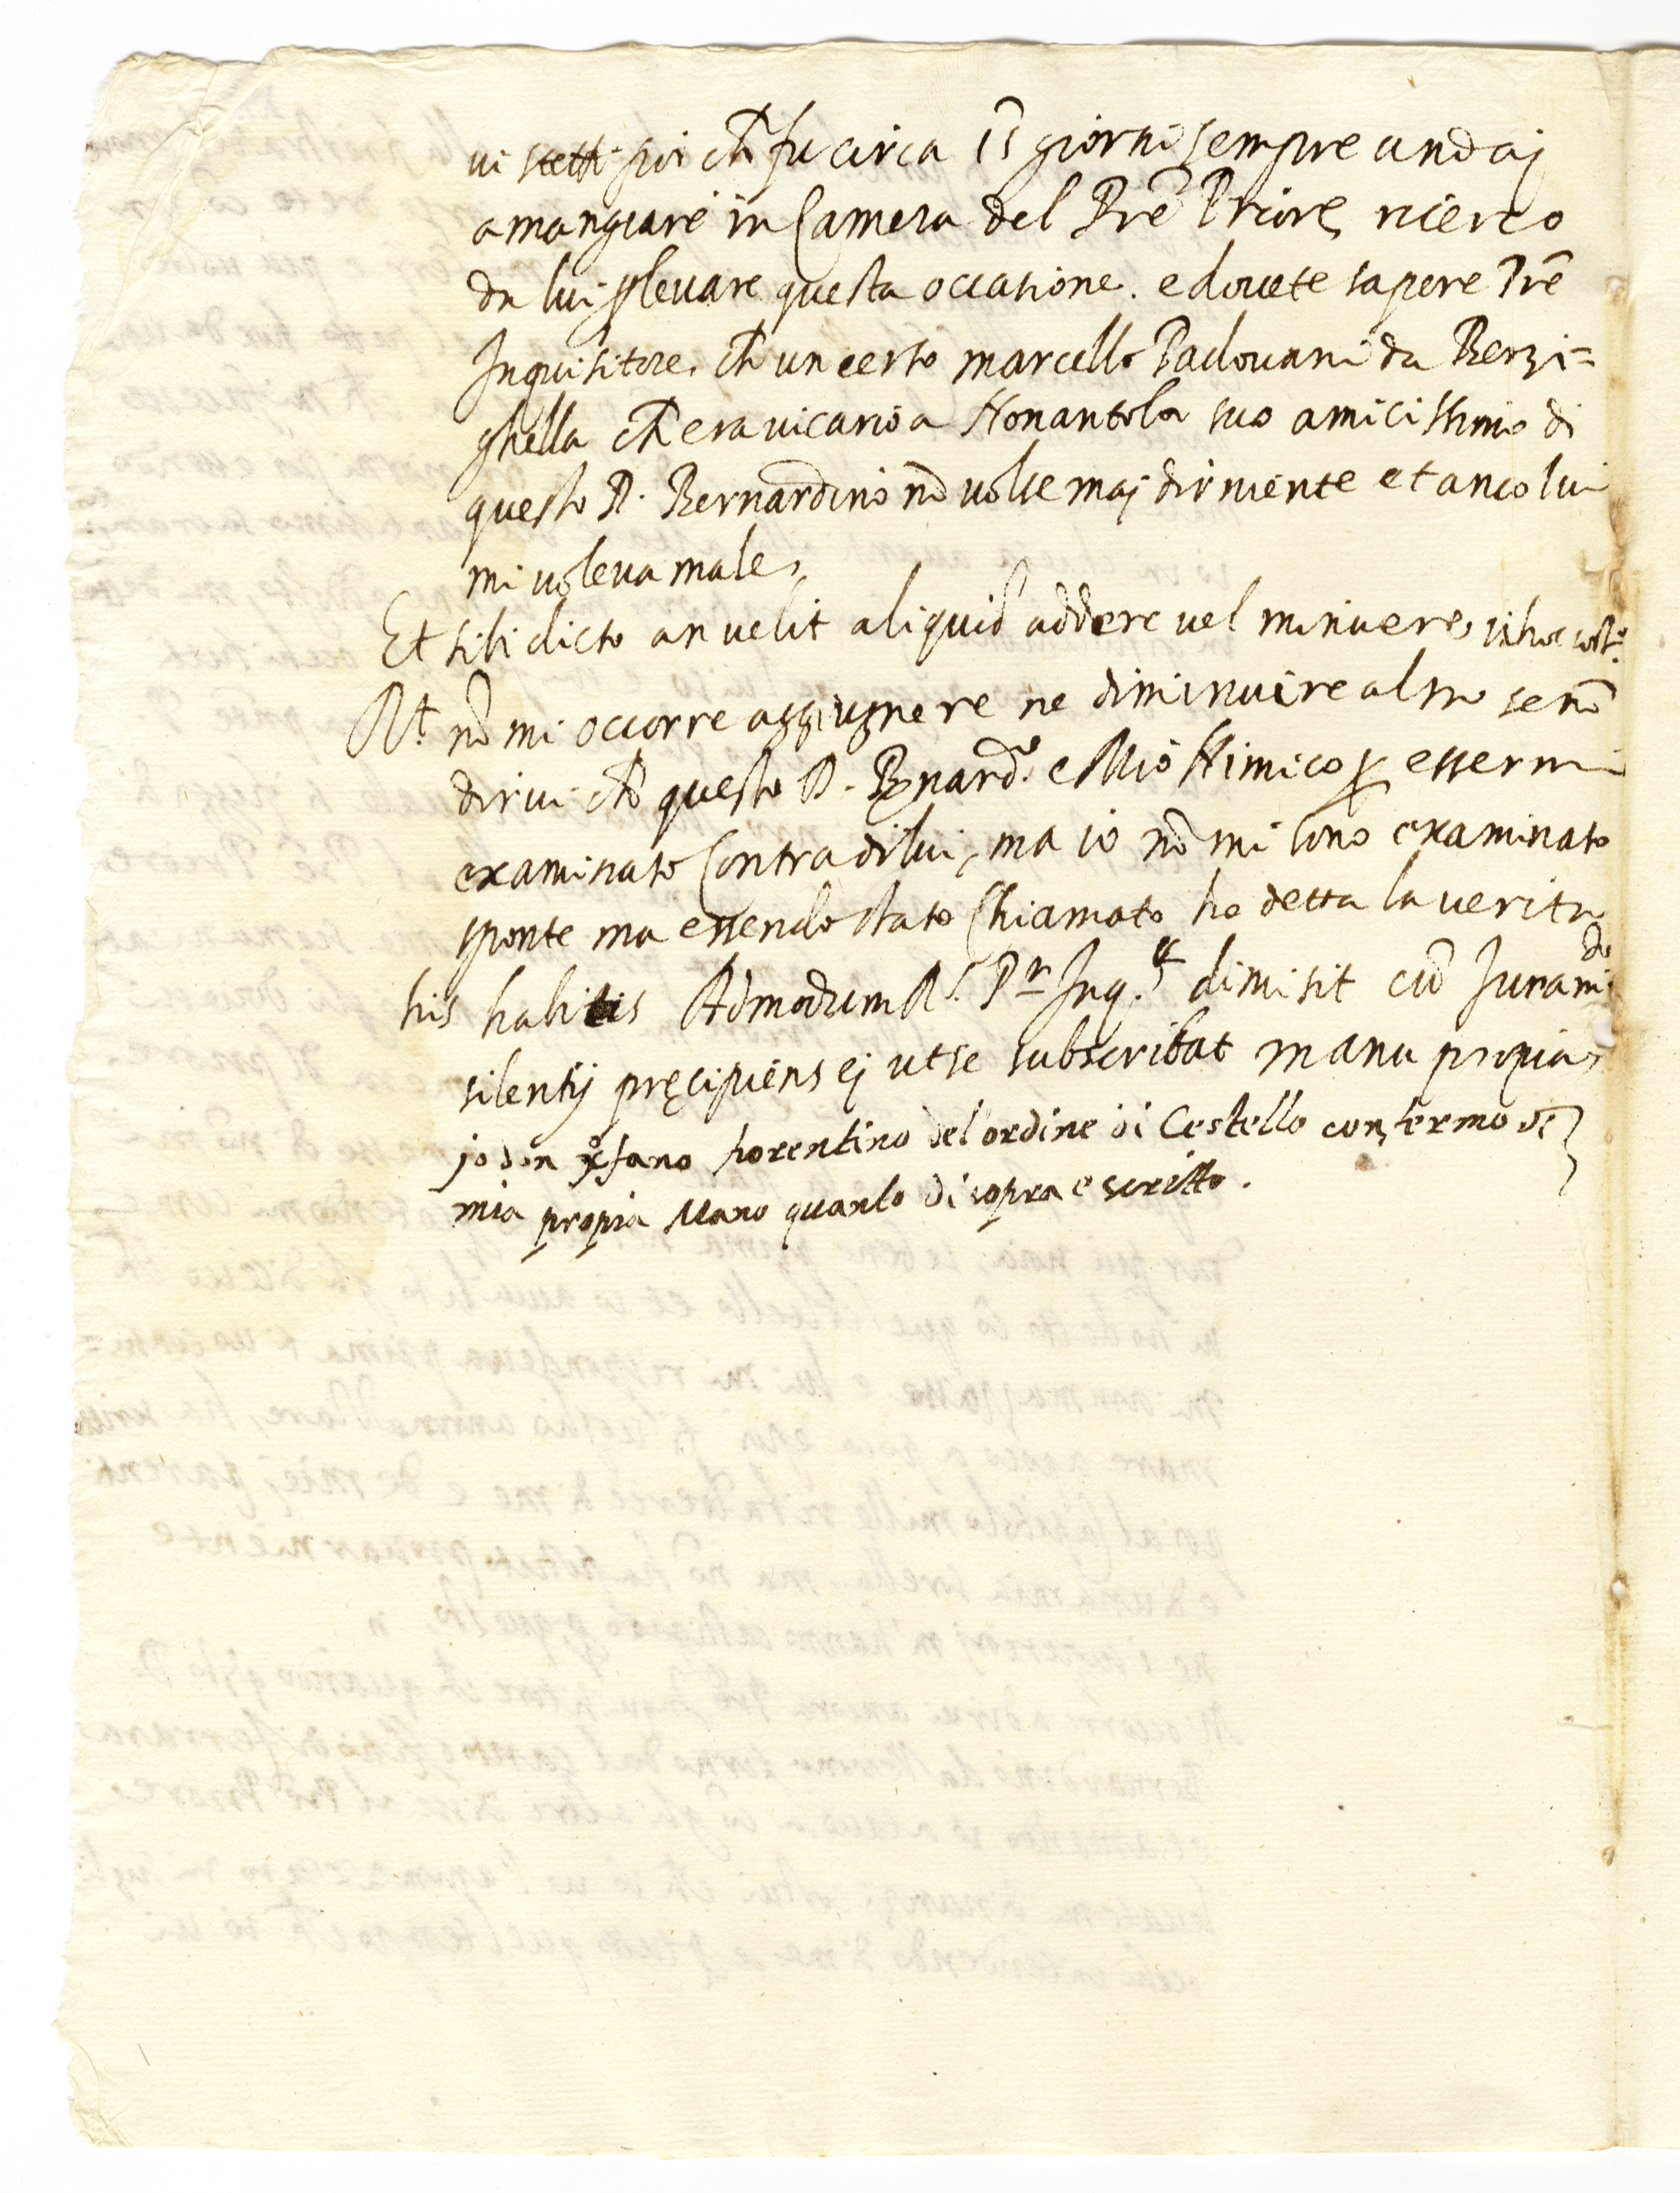 vi stetti poi ch̃ fu circa 15 giorni sempre andaj
a mangiare in Camera del Prẽ Priore, ricerco
da lui p levare questa occasione. e dovete sapere Prẽ
Inquisitore, ch̃ un certo marcello Padovani da Berzi=
ghella ch̃ era vicario a Nonantola suo amicissimo di
questo D. Bernardino nõ volse maj dir niente et anco lui
mi voleva male,
Et sibi dicto an velit aliquid addere vel minuere,
Rt. nõ mi occorre aggiugnere ne diminuire altro se nõ
dirvi ch̃ questo D. Bernardo. e Mio Nimico p essermi
examinato Contra di lui, ma io nõ mi sono examinato
sponte ma essendo stato Chiamato ho detta la verita
his habitis Admodum R. Pr Inq.r dimisit cũ Juramdo
silentij pręcipiens ej ut se subscribat manu propia,
jo don xpfano fiorentino del ordine di Cestello confermo di
mia propia Mano quanto di sopra e scritto.